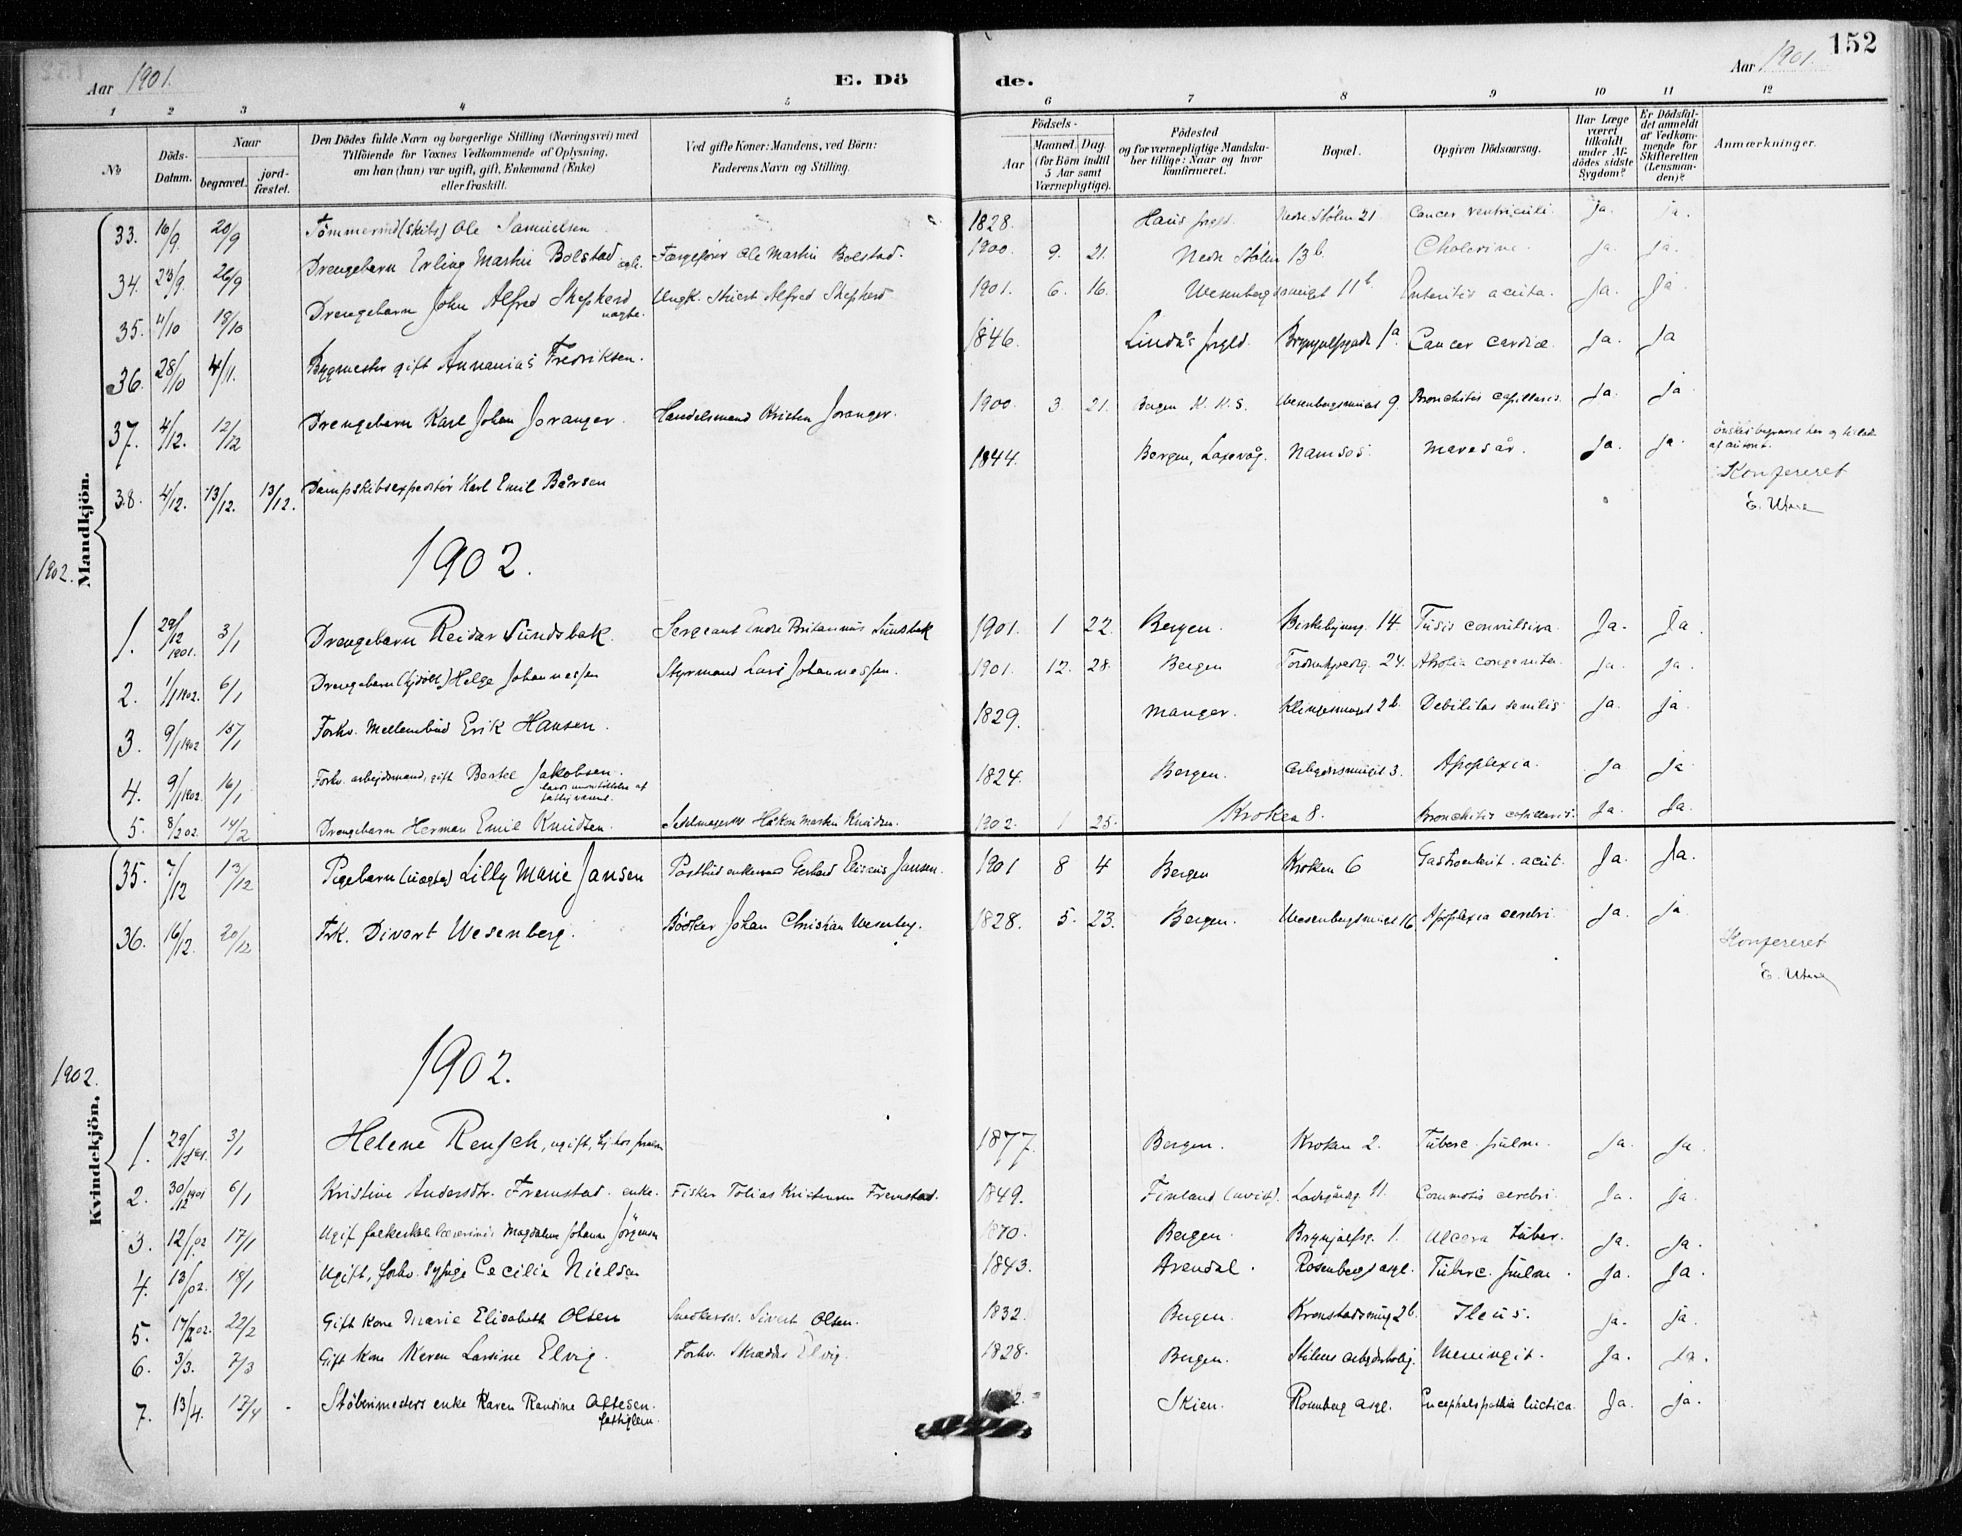 152
Aar 1901.
E. Dö de.
Aar 1901.
1 2 3 4 5 6 7 8 9 10 11 12
No
Döds-Datum.
Naar
begravet.
jord-fæstet.
Den Dödes fulde Navn og borgerlige Stilling (Næringsvei) med
Tilföiende for Voxnes Vedkommende af Oplysning,
om han (hun) var ugift, gift, Enkemand (Enke)
eller fraskilt.
Ved gifte Koner: Mandens, ved Börn:
Faderens Navn og Stilling.
Födsels-
Aar
Maaned. Dag
(for Börn indtil
5 Aar samt
Værnepligtige).
Födested
og for værnepligtige Mandska-
ber tillige: Naar og hvor
konfirmeret.
Bopæl.
Opgiven Dödsaarsag.
Har Læge
været
tilkaldt
under Af-
dödes sidste
Sygdom?
Er Dödsfal-
det anmeldt
af Vedkom-
mende for
Skifteretten
(Lensman-
den)?
Anmærkninger.
Mandkjön.
33. 16/9. 20/9 Ole Samuelsen 1828. Haus prgld. Nedre Stölen 21 Cancer ventriculi. Ja. ja.
34. 23/9. 26/9 Drengebarn Erling Martin Bolstad Færgefører Ole Martin Bolstad. 1900. 9. 21. Nedre Stölen 13b. Cholerine. Ja. ja.
35. 4/10 18/10 Drengebarn John Alfred Shepherd uægte. Ungk. Stuert Alfred Shepherd 1901. 6. 16. Wesenbergsmuget 11b. Enteritis acuta. Ja. ja.
36. 28/10 4/11. Bygmester gift Annanias Fredriksen. 1846. Lindås prgld. 1a. Cancer cardiæ Ja. Ja
37. 4/12. 12/12 Drengebarn Karl Johan Joranger. Handelsmand Kristen Joranger. 1900. 3. 21. Bergen K. K. S. Wesenbergsmuget 9. Bronchitis capillaris. Ja. Ja
38. 4/12. 13/12. 13/12. Dampskibsexpeditör Karl Emil Bårsen 1844. Bergen, Laxevåg. Namsos. Mavesår. Ja. Ja.
Konfereret
E. Utne
1902.
1902.
1. 29/12 1901. 3/1 Drengebarn Reidar Sundsbak. Sergeant Endre Britannus Sundsbak 1901. 1 22. Bergen. 14. Tusis convulsiva. Ja. Ja.
2. 1/1 1902. 6/1 Drengebarn Helge Johannessen Styrmand Lars Johannessen. 1901. 12. 28. Bergen 24. congenita Ja. ja.
3. 9/1 1902 15/1 Forhv. Mellembud Erik Hansen. 1829. Manger. 2b. Debilitas senilis Ja. ja.
4. 9/1 1902. 16/1 Forhv. arbejdsmand, gift Bertel Jakobsen. 1824. Bergen. 3. Apoplexia. Ja ja
5. 8/2 02. 14/2 Drengebarn Herman Emil Knudsen. Håkon Martin Knudsen. 1902. 1 25. Kroken 8. Bronchitis capillaris. Ja. Ja.
Kvindekjön.
35. 7/12 13/12 Pigebarn (uægte) Lilly Marie Jansen Postbud enkemand Gerhard Jansen. 1901 8 4 Bergen Kroken 6 Gastroenterit. acut. Ja. Ja.
36. 16/12. 20/12 Frk. Divert Wesenberg. Bödker Johan Christian Wesenberg. 1828. 5. 23. Bergen. Wesenbergsmuget 16 Apoplexia cerebri. Ja. ja
Konfereret
E. Utne
1902.
1902.
1. 29/12 1901. 3/1 Helene Rensch, ugift, 1877. Bergen. Kroken 2. Tuberc. pulm. Ja. Ja.
2. 30/12 1901 6/1 Kristine Andersdtr. Fremstad. enke. Fisker Tobias Kristensen Fremstad. 1849. Finland 11. Commotio cerebri. Ja. ja.
3. 12/1 02 17/1 Ugif folkeskolelærerinde Magdalene Johanne Jörgensen 1870. Bergen. Brynjolfsg. 1. Ulcera tuber. Ja. Ja.
4. 13/1 02. 18/1 Ugift, forhv. sypige Cecilia Nielsen 1843. Arendal. Rosenberg asyl. Tuberc. pulm. Ja. Ja.
5. 17/2 02. 22/2 Gift Kone Marie Elisabeth Olsen Snedkersv. Sivert Olsen. 1832. Bergen. Kronstadsmug 2b. Ileus. Ja. ja.
6. 3/3. 7/3 Gift Kone Keren Larsine Elvig. Forhv. Skrædder Elvig. 1828. Bergen. Stölens arbejderbolig. Meningit. Ja. Ja.
7. 13/4. 17/4 enke Karen Randine Skien. Rosenberg asyl. Encephalopathia luetica. Ja. Ja.